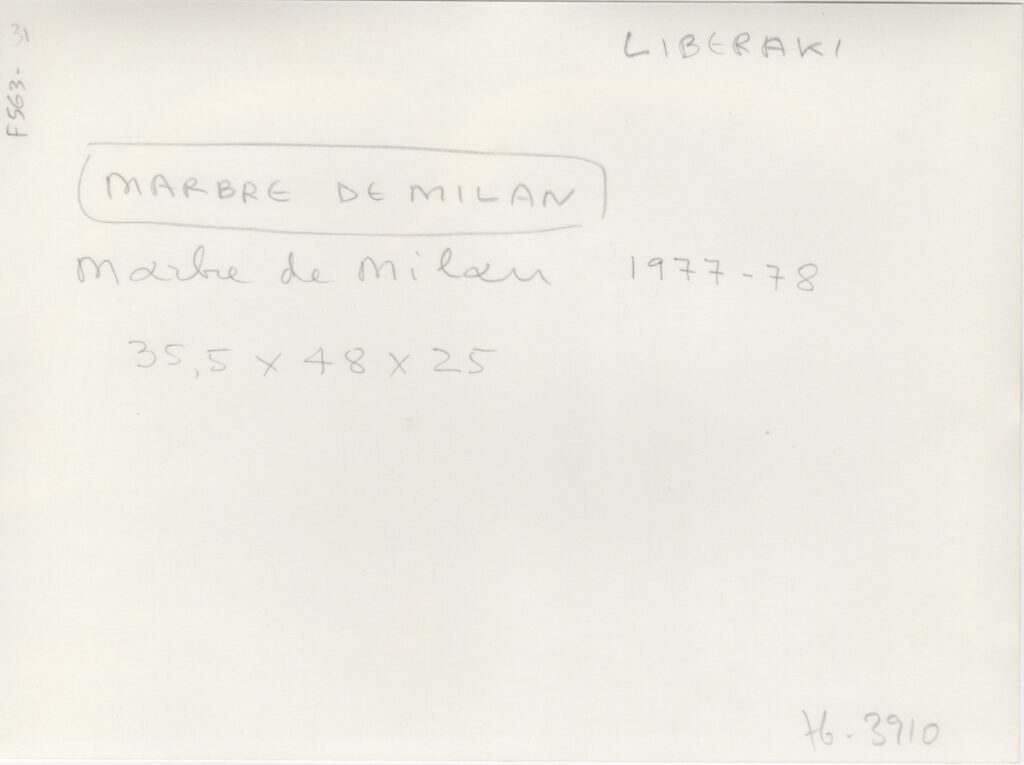 LIBERAKI
F563-31
MARBRE DE MILAN
Marbre de Milan 1977-78
35,5 x 48 x 25
76-3910